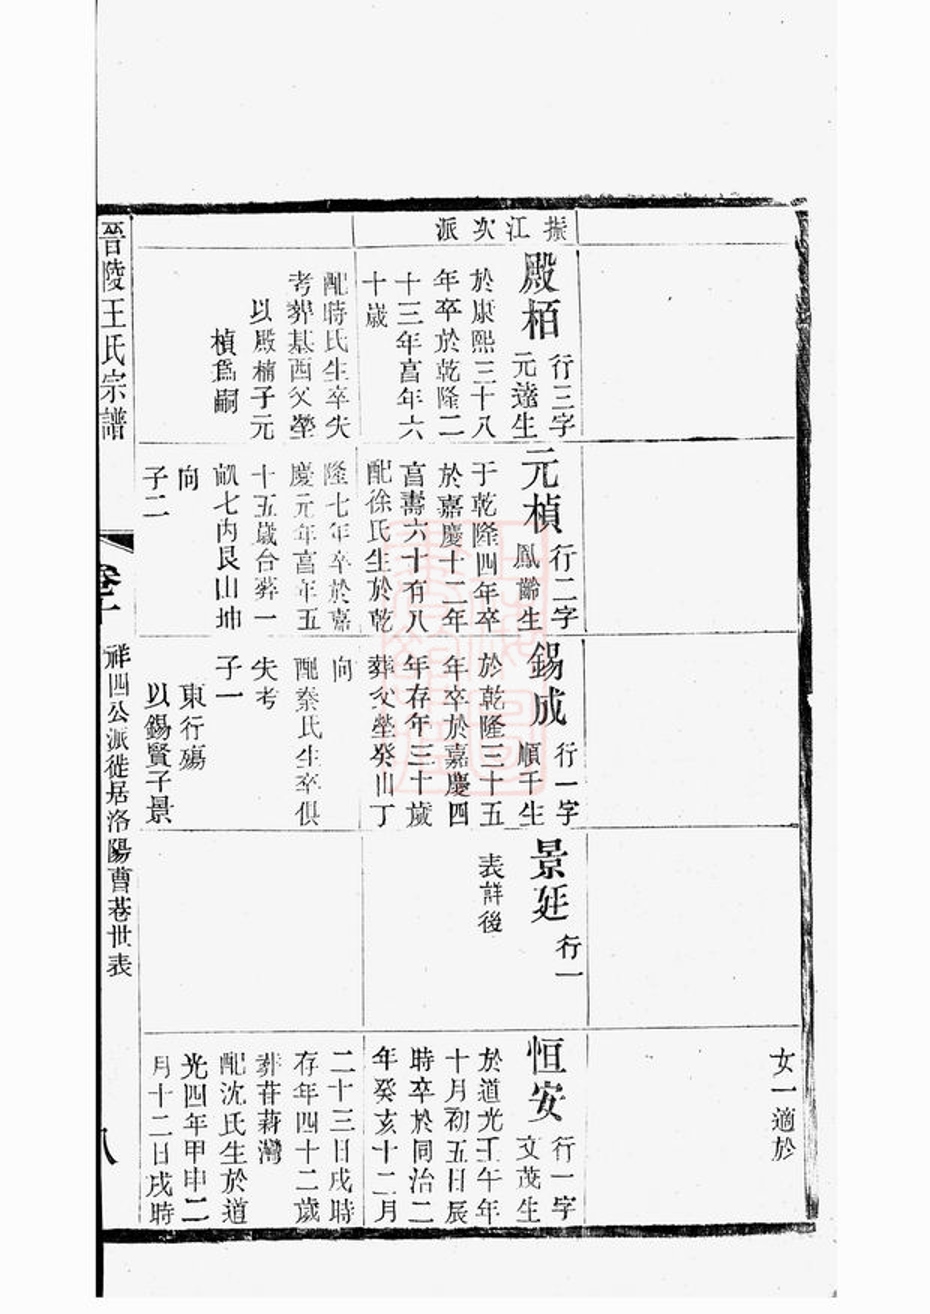 女一適於
振江次派
殿栢
行三字
元達生
於康熙三十八
年卒於乾隆二
十三年亯年六
十歲
配時氏生卒失
考葬基西父塋
以殿楠子元
楨爲嗣
元楨
行二字
鳳齡生
于乾隆四年卒
於嘉慶十二年
亯壽六十有八
配徐氏生於乾
隆七年卒於嘉
慶元年亯年五
十五歲合葬一
七內艮山坤
向
子二
錫成
行一字
順千生
於乾隆三十五
年卒於嘉慶四
年存年三十歲
葬父塋癸山丁
向
配秦氏生卒俱
失考
子一
東行殤
以錫賢子景
景廷
行一
表詳後
恒安
行一字
文茂生
於道光壬午年
十月初五日辰
時卒於同治二
年癸亥十二月
二十三日戌時
存年四十二歲
葬莙蒋灣
配沈氏生於道
光四年甲申二
月十二日戌時
晉陵王氏宗譜
卷十
祥四公派徙居洛陽曹巷世表
八